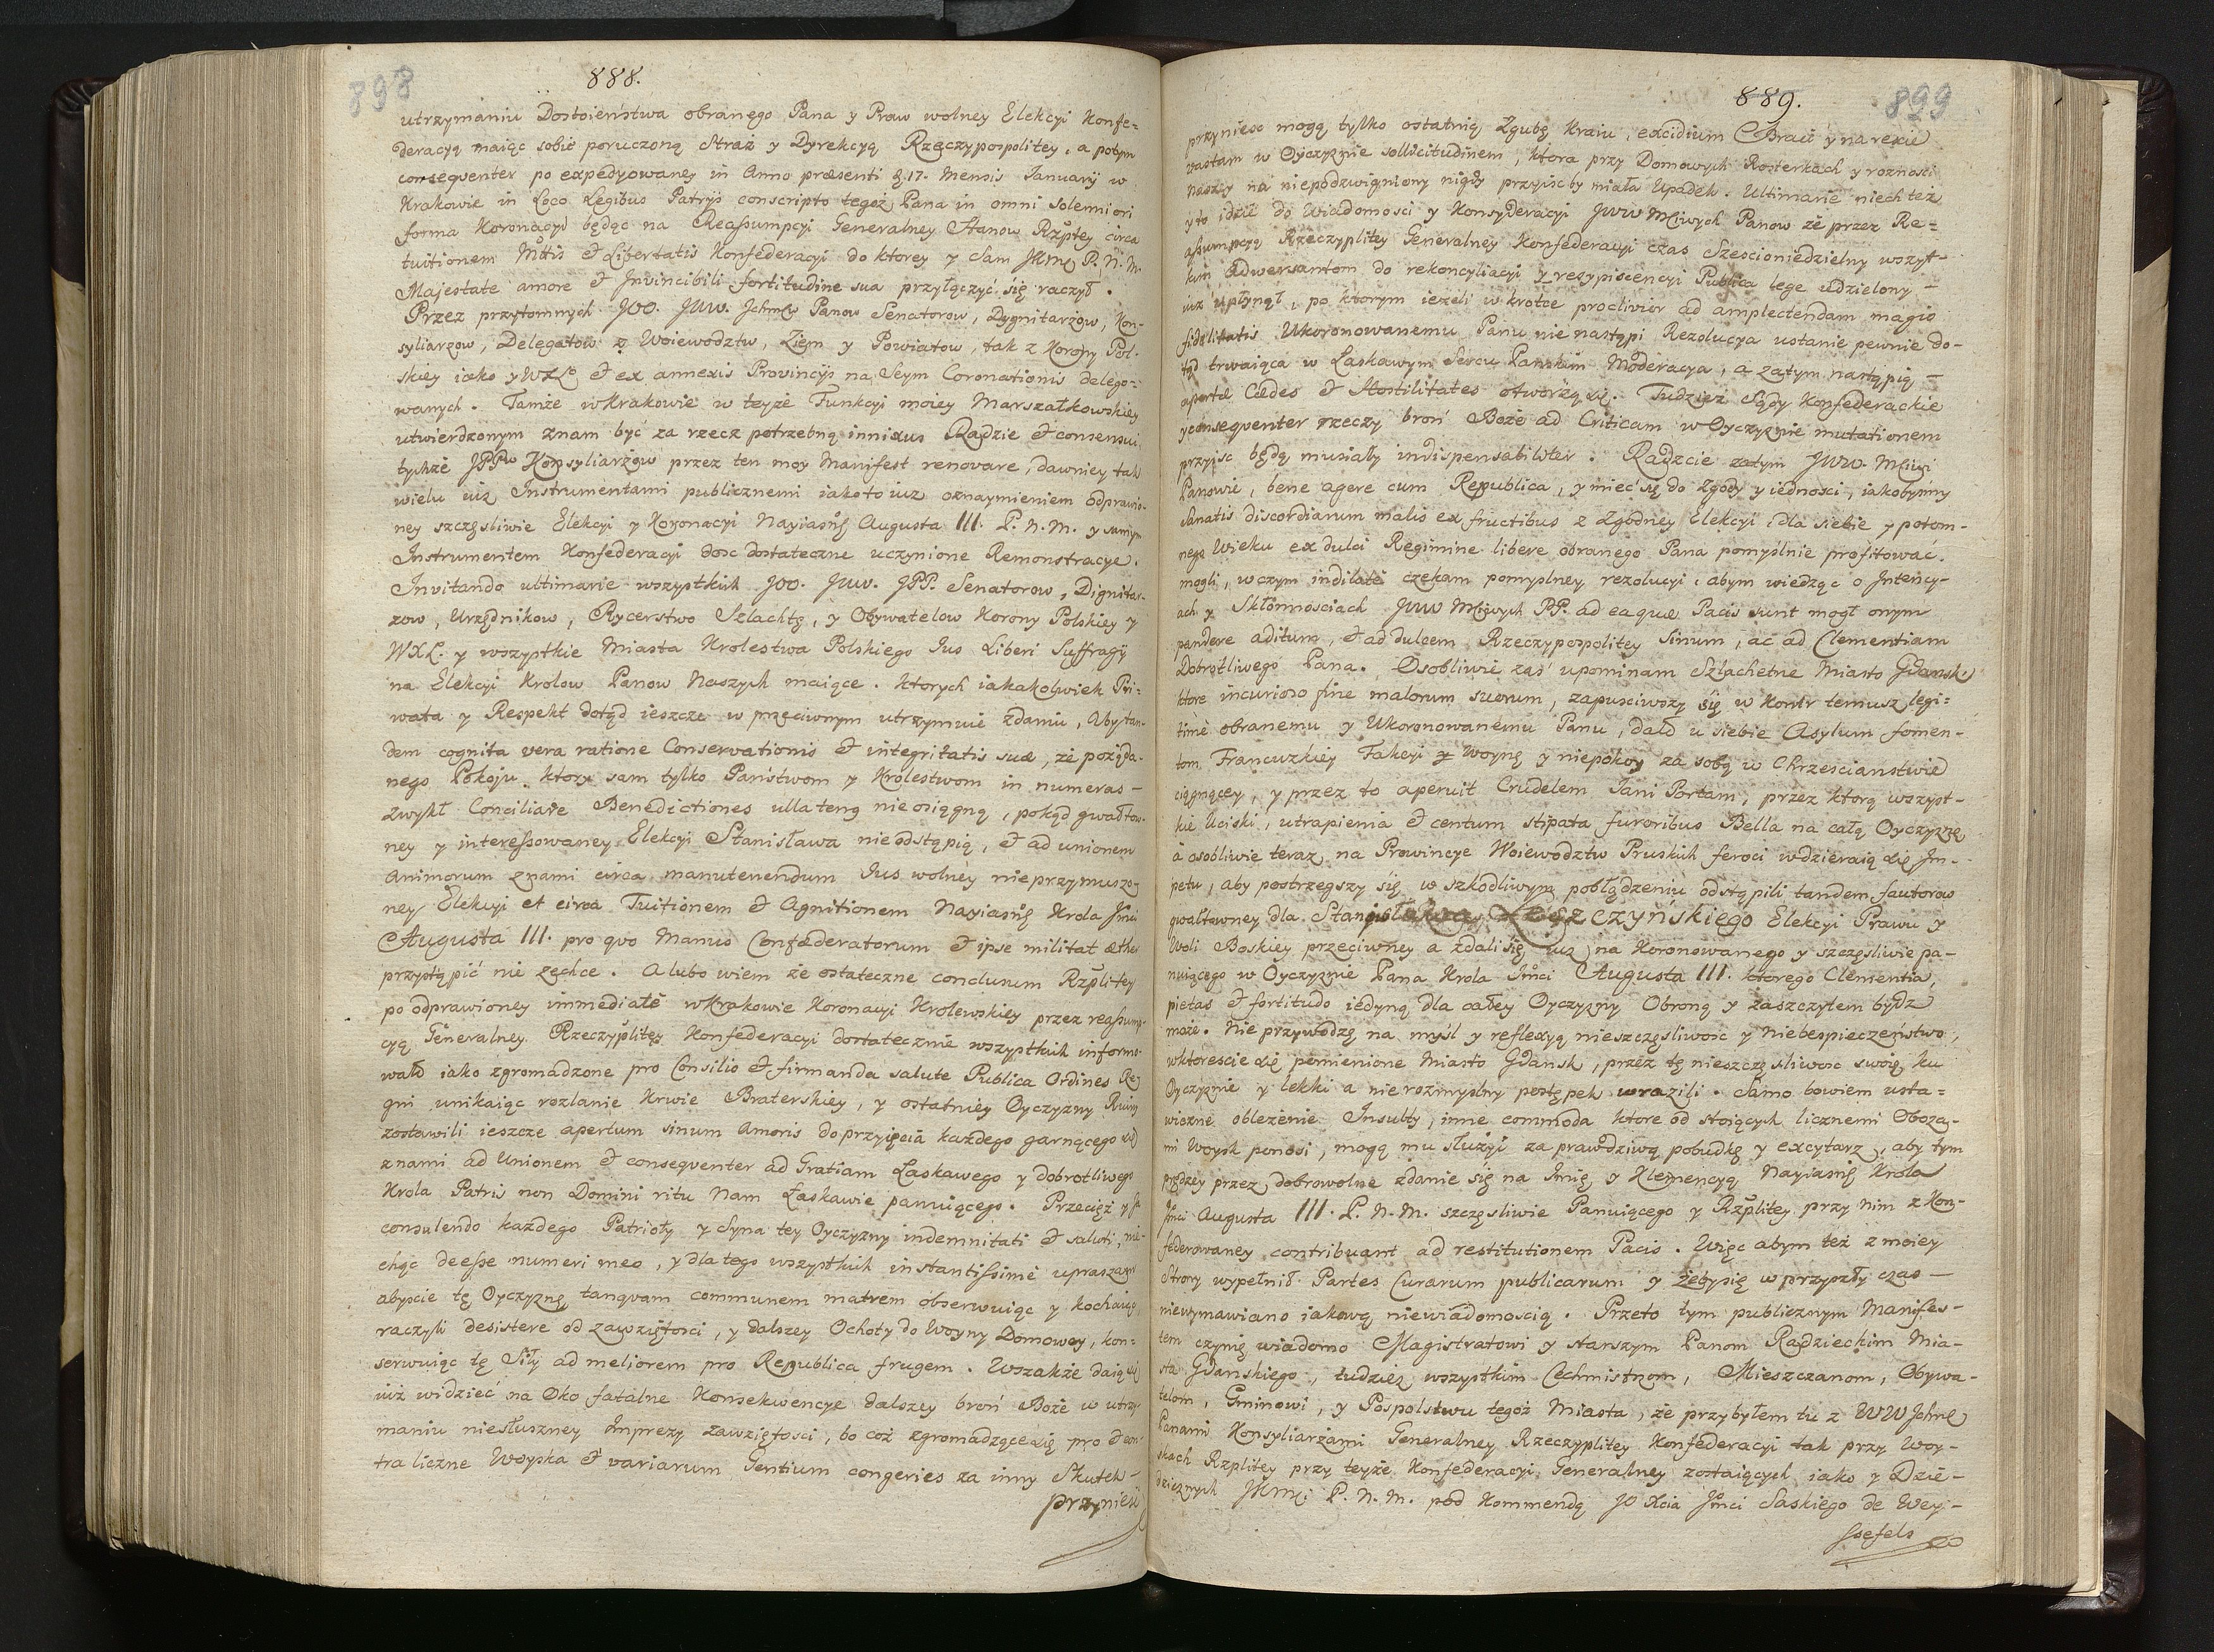 898
888.
utrzymaniu Dostoieństwa obranego Pana y Praw wolney Elekcyi Konfe=
deracyą maiąc sobie poruczoną Straż y Dyrekcyą Rzeczypospolitey, a potym
consequenter po expedyowaney in Anno præsenti d. 17. Mensis Januarij w
Krakowie in Loco Legibus Patrijs conscripto tegoż Pana in omni solenniori
forma Koronacyi będąc na Reassumpcyi Generalney Stanow Rzptey circa
tuitionem Mttis et Libertatis Konfederacyi do ktorey y Sam JKMć P. N. M.
Majestate amore et Invincibili fortitudine sua przyłączyć się raczył.
Przez przytomnych JOO. JWW. Ichmć Panow Senatorow, Dygnitarzow, Kon-
syliarzow, Delegatow z Woiewodztw, Ziem y Powiatow, tak z Korony Pol-
skiey iako y WXLo et ex annexis Provincijs na Seym Coronationis delego=
wanych. Tamże w Krakowie w teyże Funkcyi moiey Marszałkowskiey
utwierdzonym znam być za rzecz potrzebną innixus Radzie et consensui
tychże JPPw Konsyliarzow przez ten moy Manifest renovare, dawniey tak
wielu iuż Instrumentami publicznemi iakoto iuz oznaymieniem odprawio-
ney szczęsliwie Elekcyi y Koronacyi Nayiaśn Augusta III. P. N. M. y samym
Instrumentem Konfederacyi dosc dostateczne uczynione Remonstracye.
Invitando ultimarie wszystkich JOO. JWW. JPP. Senatorow, Dignitar-
zow, Urzędnikow, Rycerstwo Szlachtę, y Obywatelow Korony Polskiey y
WXL. y wszystkie Miasta Krolestwa Polskiego Ius Liberi Suffragij
na Elekcyi Krolow Panow Naszych maiące. Ktorych iakakolwiek Pri=
wata y Respekt dotąd ieszcze w przeciwnym utrzymuie zdaniu, Aby tan-
dem cognita vera ratione Conservationis et integritatis suæ, że pożąda-
nego Pokoju, ktory sam tylko Państwom y Krolestwom in numeras -
zwykł Conciliare Benedictiones ullateng nie osiągną, pokąd gwałtow-
ney y interessowaney Elekcyi Stanisława nieodstąpią, et ad unionem
animorum znami circa manutenendum Ius wolney nieprzymuszo=
ney Elekcyi et circa Tuitionem et Agnitionem Nayiaśn Krola Jmci
Augusta III. pro quo Manus Confæderatorum et ipse militat æther
przystąpić nie zechce. A lubo wiem że ostateczne conclusum Rzplitey
po odprawioney immediate w Krakowie Koronacyi Krolewskiey przez reassump-
cyą Generalney Rzeczyplitey Konfederacyi dostatecznie wszystkich informo-
wało iako zgromadzone pro Consilio et firmanda salute Publica Ordines Re
gni unikaiąc rozlanie Krwie Braterskiey, y ostatniey Oyczyzny Ruiny
zostawili ieszcze apertum sinum Amoris do przyięcia każdego garnącego się
znami ad Unionem et consequenter ad Gratiam Łaskawego y dobrotliwego
Krola Patris non Domini ritu Nam Łaskawie panuiącego. Przecież y Ja
consulendo każdego Patrioty y Syna tey Oyczyzny indemnitati et saluti, nie-
chąc deesse numeri meo, y dla tego wszystkich instantissimè upraszam
abyscie tę Oyczyznę tanquam communem matrem obserwuiąc y kochaiąc
raczyli desistere od zawziętosci, y dalszey Ochoty do Woyny Domowey, kon=
serwuiąc tę Siły ad meliorem pro Republica frugem. Wszakże daią się
iuż widzieć na Oko fatalne Konsekwencye dalszey broń Boże w utrzy-
maniu niesłuszney Imprezy zawziętosci, bo coż zgromadzące się pro et con-
tra liczne Woyska et variarum Gentium congeries za inny Skutek -
przynieść
899
889.
przyniesc mogą tylko ostatnią Zgubę Kraiu, excidium Braci y na rexiu
vastam w Oyczyznie sollicitudinem, ktora przy Domowych Rosterkach y roznosci
naszey na niepodzwigniony nigdy przyisc by miała Upadek. Ultimarie niech też
y to idzie do Wiadomosci y Konsyderacyi JWW Mciwych Panow że przez Re=
assumpcyą Rzeczyplitey Generalney Konfederacyi czas Szescioniedzielny wszyst-
kim Adwersantom do rekoncyliacyi y rezypiscencyi Publica lege udzielony -
iuż upłynął, po ktorym ieżeli w krotce proclivior ad amplectendam magis
fidelitatis Ukoronowanemu Panu nie nastąpi Rezolucya ustanie pewnie do-
tąd trwaiąca w Łaskawym Sercu Pańskim Moderacya, a zatym nastąpią -
apertæ Cædes et Hostilitates otworzą się. Tudzież Sądy Konfederackie
y consequenter rzeczy broń Boże ad Criticam w Oyczyznie mutationem
przyisc będą musiały indispensabiliter. Radzcie zatym JWW. Mciwi
Panowie, bene agere cum Republica, y miec się do Zgody y iednosci, iakobysmy
sanatis discordiarum malis ex fructibus z Zgodney Elekcyi i dla siebie y potom-
nego Wieku ex dulci Regimine libere obranego Pana pomyślnie profitować.
mogli, w czym indilatè czekam pomyslney rezolucyi. abym wiedząc o Intency-
ach y Skłonnosciach JWW Mciwych PP. ad ea quæ Pacis sunt mogł onym
pandere aditum, et ad dulcem Rzeczypospolitey Sinum, ac ad Clementiam
Dobrotliwego Pana. Osobliwie zaś upominam Szlachetne Miasto Gdansk
ktore incurioso fine malorum suorum, zapusciwszy się w Kontr temusz legi=
time obranemu y Ukoronowanemu Panu, dało u siebie Asylum fomen-
tom Francuzkiey Fakcyi y Woynę y niepokoy za sobą w Chrzescianstwie
ciągnącey, y przez to aperuit Crudelem Iani Portam, przez ktorą wszyst-
kie Uciski, utrapienia et centum stipata furoribus Bella na całą Oyczyznę
à osobliwie teraz na Prowincye Woiewodztw Pruskich feroci wdzieraią się Im-
petu, aby postrzegszy się w szkodliwym pobłądzeniu odstąpili tandem fautorow
gwałtowney dla Stanisława Leszczyńskiego Elekcyi Prawu y
Woli Boskiey przeciwney a zdali się iuż na Koronowanego y szczęsliwie pa-
nuiącego w Oyczyznie Pana Krola Jmci Augusta III. ktorego Clementia,
pietas et fortitudo iedyną dla całey Oyczyzny Obroną y zaszczytem bydz
może. Nie przywodzę na myśl y reflexyą nieszczęsliwosc y niebespieczeństwo,
w ktorescie się pomienione Miasto Gdansk, przez tę nieszczęsliwosc swoię ku
Oyczyznie y lekki a nierozmyslny postępek wrazili. Samo bowiem usta=
wiczne oblezenie Insulty, inne commoda ktore od stoiących licznemi Oboza-
mi Woysk ponosi, mogą mu służyć za prawdziwą pobudkę y excytarz, aby tym
prędzey przez dobrowolne zdanie się na Imię y Klemencyą Nayiaśn Krola
Jmci Augusta III. P. N. M. szczęsliwie Panuiącego y Rzplitey przy nim z Kon-
federowaney contribuant ad restitutionem Pacis. Więc abym też z moiey
Strony wypełnił Partes Curarum publicarum y żeby się w przyszły czas -
niewymawiano iakową niewiadomoscią. Przeto tym publicznym Manifes-
tem czynię wiadomo Magistratowi y starszym Panom Radzieckim Mia-
sta Gdanskiego, tudziesz wszystkim Cechmistrzom, Mieszczanom, Obywa-
telom, Gminowi, y Pospolstwu tegoż Miasta, że przybyłem tu z WW Ichmć
Panami Konsyliarzami Generalney Rzeczyplitey Konfederacyi tak przy Woy-
skach Rzplitey przy teyże Konfederacyi Generalney zostaiących iako y Dzie-
dzicznych JKMci P. N. M. pod Kommendą JO Xcia Jmci Saskiego de Wey-
ssefels